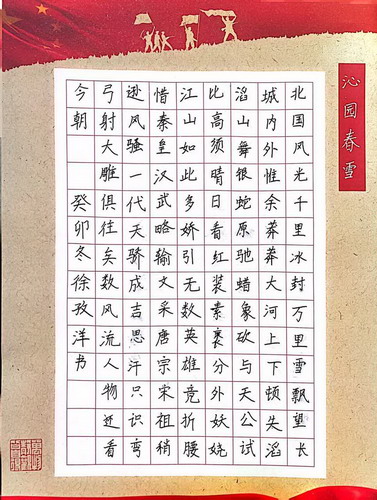 沁园春雪
北国风光千里冰封万里雪飘望长
城内外惟余莽莽大河上下顿失滔
滔山舞银蛇原驰蜡象欲与天公试
比高须晴日看红装素裹分外妖娆
江山如此多娇引无数英雄竞折腰
惜秦皇汉武略输文采唐宗宋祖稍
逊风骚一代天骄成吉思汗只识弯
弓射大雕俱往矣数风流人物还看
今朝 癸卯冬徐孜洋书